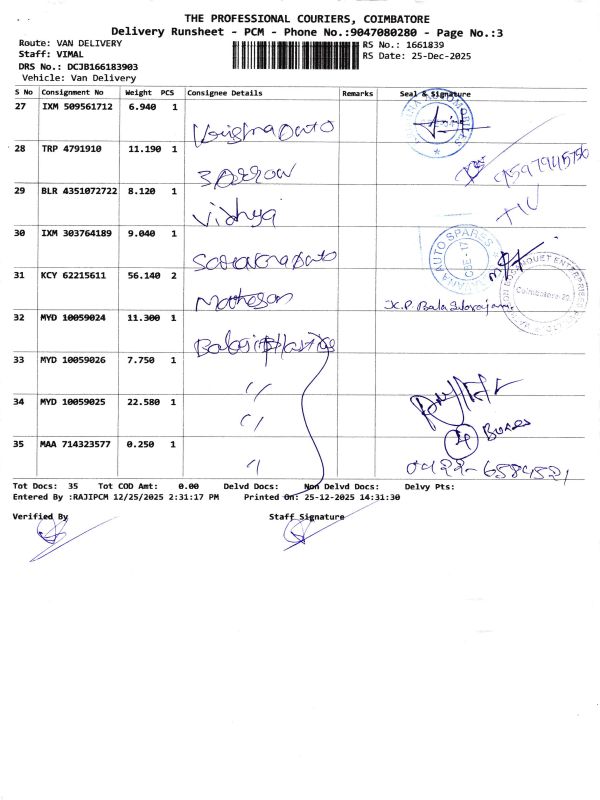 THE PROFESSIONAL COURIERS, COIMBATORE
Delivery Runsheet - PCM - Phone No.:9047080280 - Page No.:3
Route: VAN DELIVERY
Staff: VIMAL
DRS No.: DCJB166183903
Vehicle: Van Delivery
RS No.: 1661839
RS Date: 25-Dec-2025
S No Consignment No Weight PCS Consignee Details Remarks Seal & Signature
27 IXM 509561712 6.940 1
28 TRP 4791910 11.190 1
9597945756
29 BLR 4351072722 8.120 1 Vidhya
30 IXM 303764189 9.040 1
AUTO SPARES
CBE - 17
31 KCY 62215611 56.140 2
K.P. Bala
Coimbatore
32 MYD 10059024 11.300 1 Balaji Plastics
33 MYD 10059026 7.750 1 "
34 MYD 10059025 22.580 1 "
4 Boxes
35 MAA 714323577 0.250 1 "
0422-6584521
Tot Docs: 35 Tot COD Amt: 0.00 Delvd Docs: Non Delvd Docs: Delvy Pts:
Entered By :RAJIPCM 12/25/2025 2:31:17 PM Printed On: 25-12-2025 14:31:30
Verified By Staff Signature